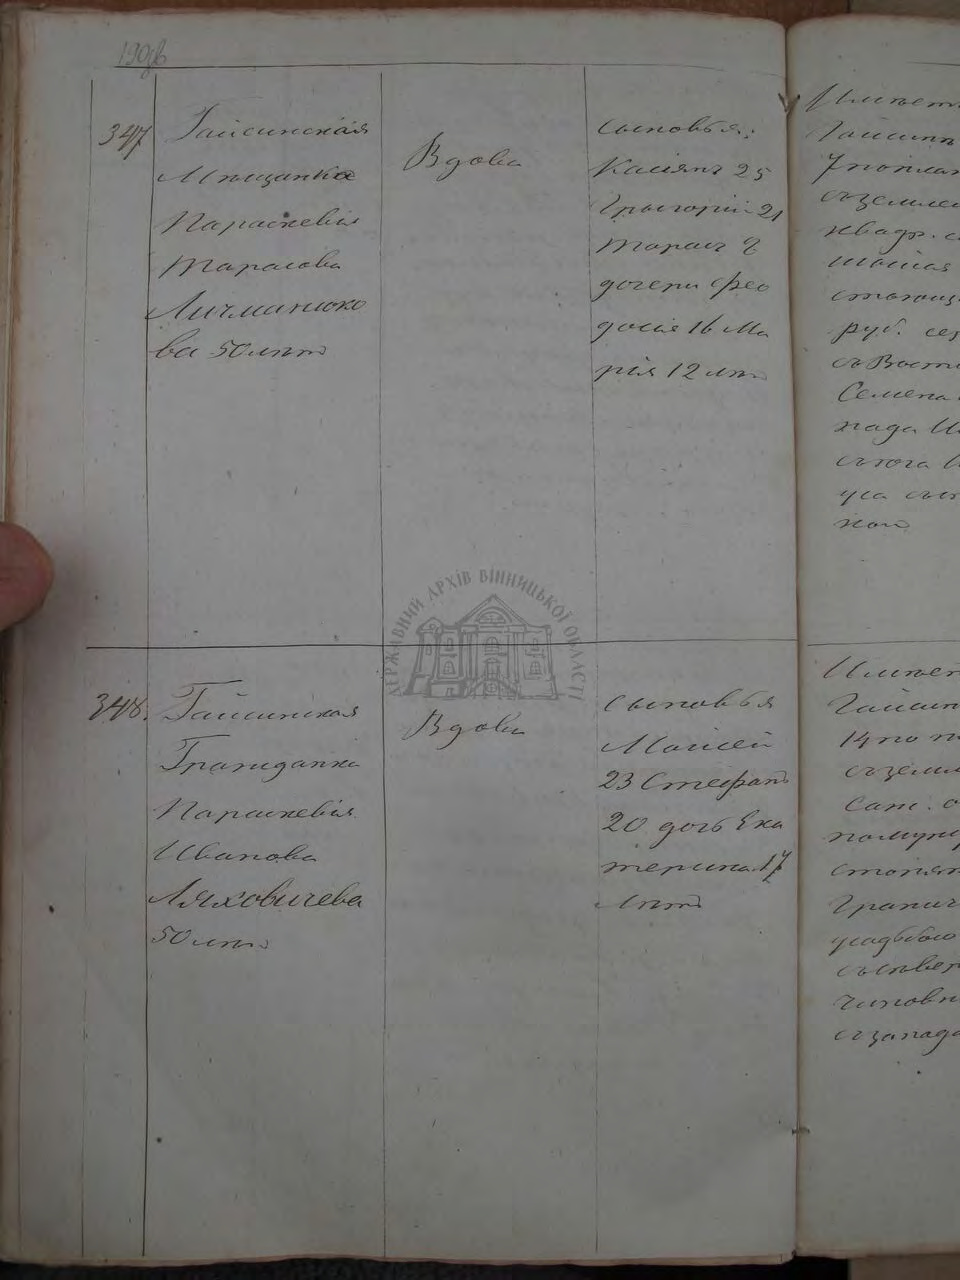 190об
347
Гайсинская
Мѣщанка
Параскевія
Тарасова
Личманюко
ва 50 лѣтъ
Вдова
сыновья:
Касіянъ 25
Григорій 21
Тарасъ 8
дочери Фео
досія 16 Ма
рія 12 лѣтъ
Имѣет
Гайсин
съ землей
квадр. с
руб. сер
съ Восто
Семена
пада
сына
348.
Гайсинская
Гражданка
Параскевія
Иванова
Ляховичева
50 лѣтъ
Вдова
сыновья
Моисей
23 Стефанъ
20 дочь Ека
терина 17
лѣтъ
Имѣет
Гайсин
14 по п
съ земл
саж. о
Гранич
усадьбою
чиновн
съ запада
ДЕРЖАВНИЙ АРХІВ ВІННИЦЬКОЇ ОБЛАСТІ